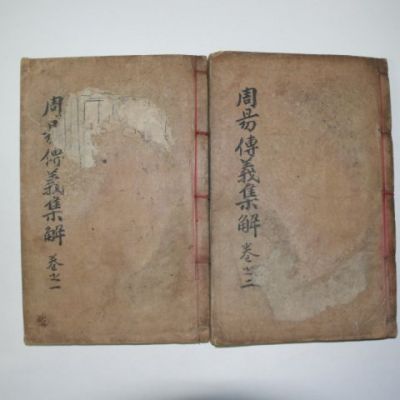 周易傳義集解 卷之一
周易傳義集解 卷之二